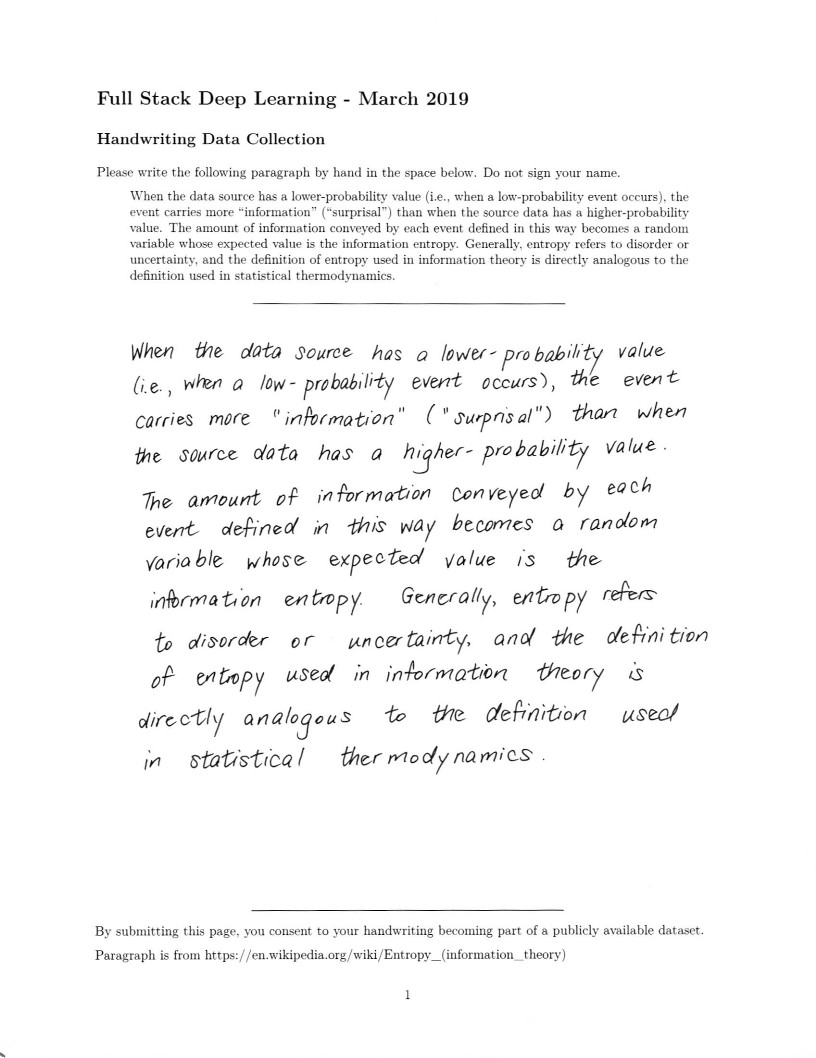 Full Stack Deep Learning - March 2019
Handwriting Data Collection
Please write the following paragraph by hand in the space below. Do not sign your name.
When the data source has a lower-probability value (i.e., when a low-probability event occurs), the
event carries more “information” (“surprisal”) than when the source data has a higher-probability
value. The amount of information conveyed by each event defined in this way becomes a random
variable whose expected value is the information entropy. Generally, entropy refers to disorder or
uncertainty, and the definition of entropy used in information theory is directly analogous to the
definition used in statistical thermodynamics.
When the data source has a lower-probability value
(i.e., when a low-probability event occurs), the event
carries more "information" ("surprisal") than when
the source data has a higher-probability value.
The amount of information conveyed by each
event defined in this way becomes a random
variable whose expected value is the
information entropy. Generally, entropy refers
to disorder or uncertainty, and the definition
of entropy used in information theory is
directly analogous to the definition used
in statistical thermodynamics.
By submitting this page, you consent to your handwriting becoming part of a publicly available dataset.
Paragraph is from https://en.wikipedia.org/wiki/Entropy_(information_theory)
1